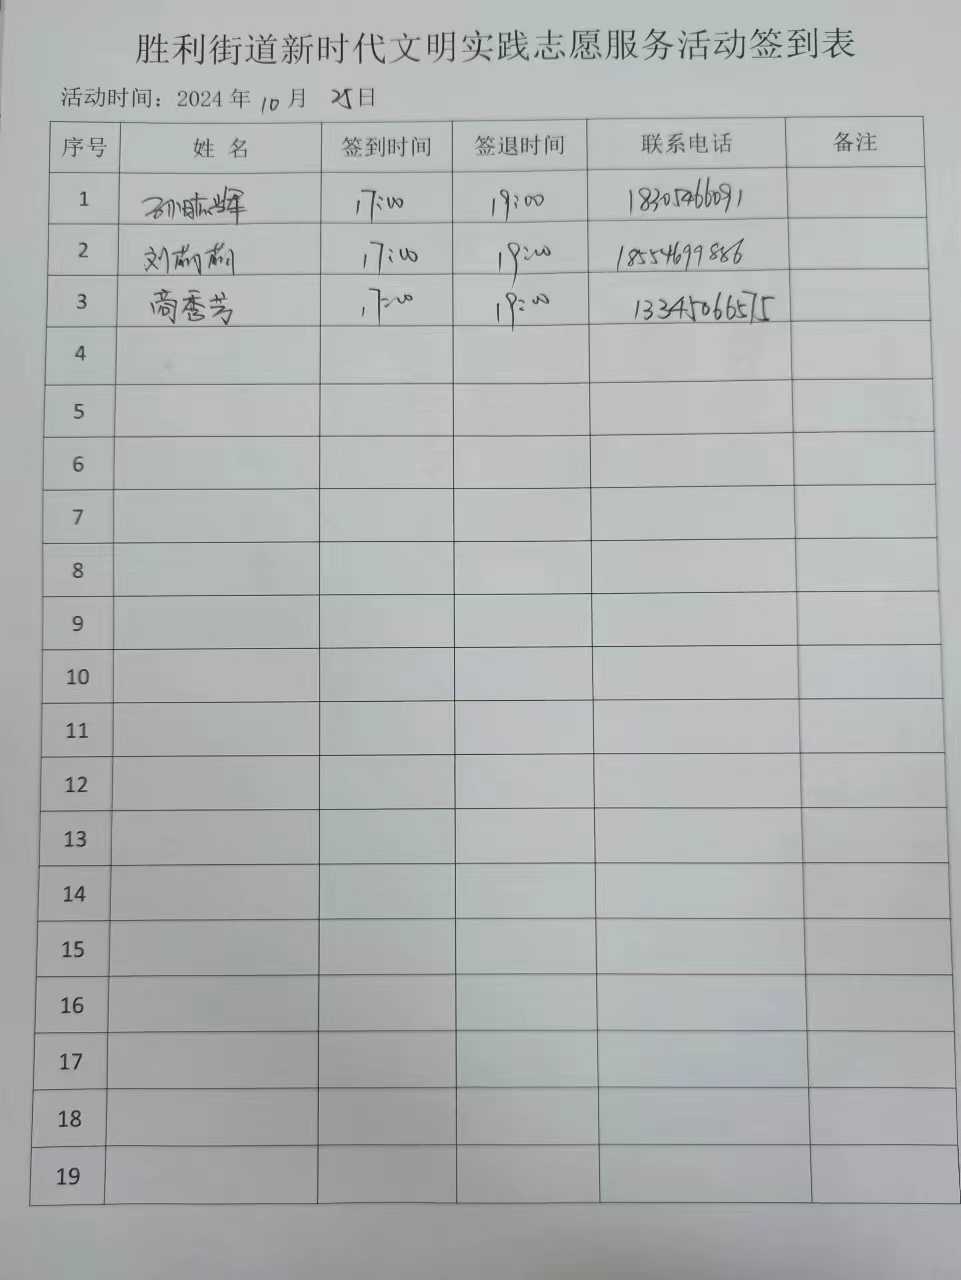 胜利街道新时代文明实践志愿服务活动签到表
活动时间：2024 年 10 月 25日
序号 姓 名 签到时间 签退时间 联系电话 备注
1 17:00 19:00 18305466091
2 刘莉莉 17:00 19:00 18554699886
3 商秀芳 17:00 19:00 13345066575
4
5
6
7
8
9
10
11
12
13
14
15
16
17
18
19